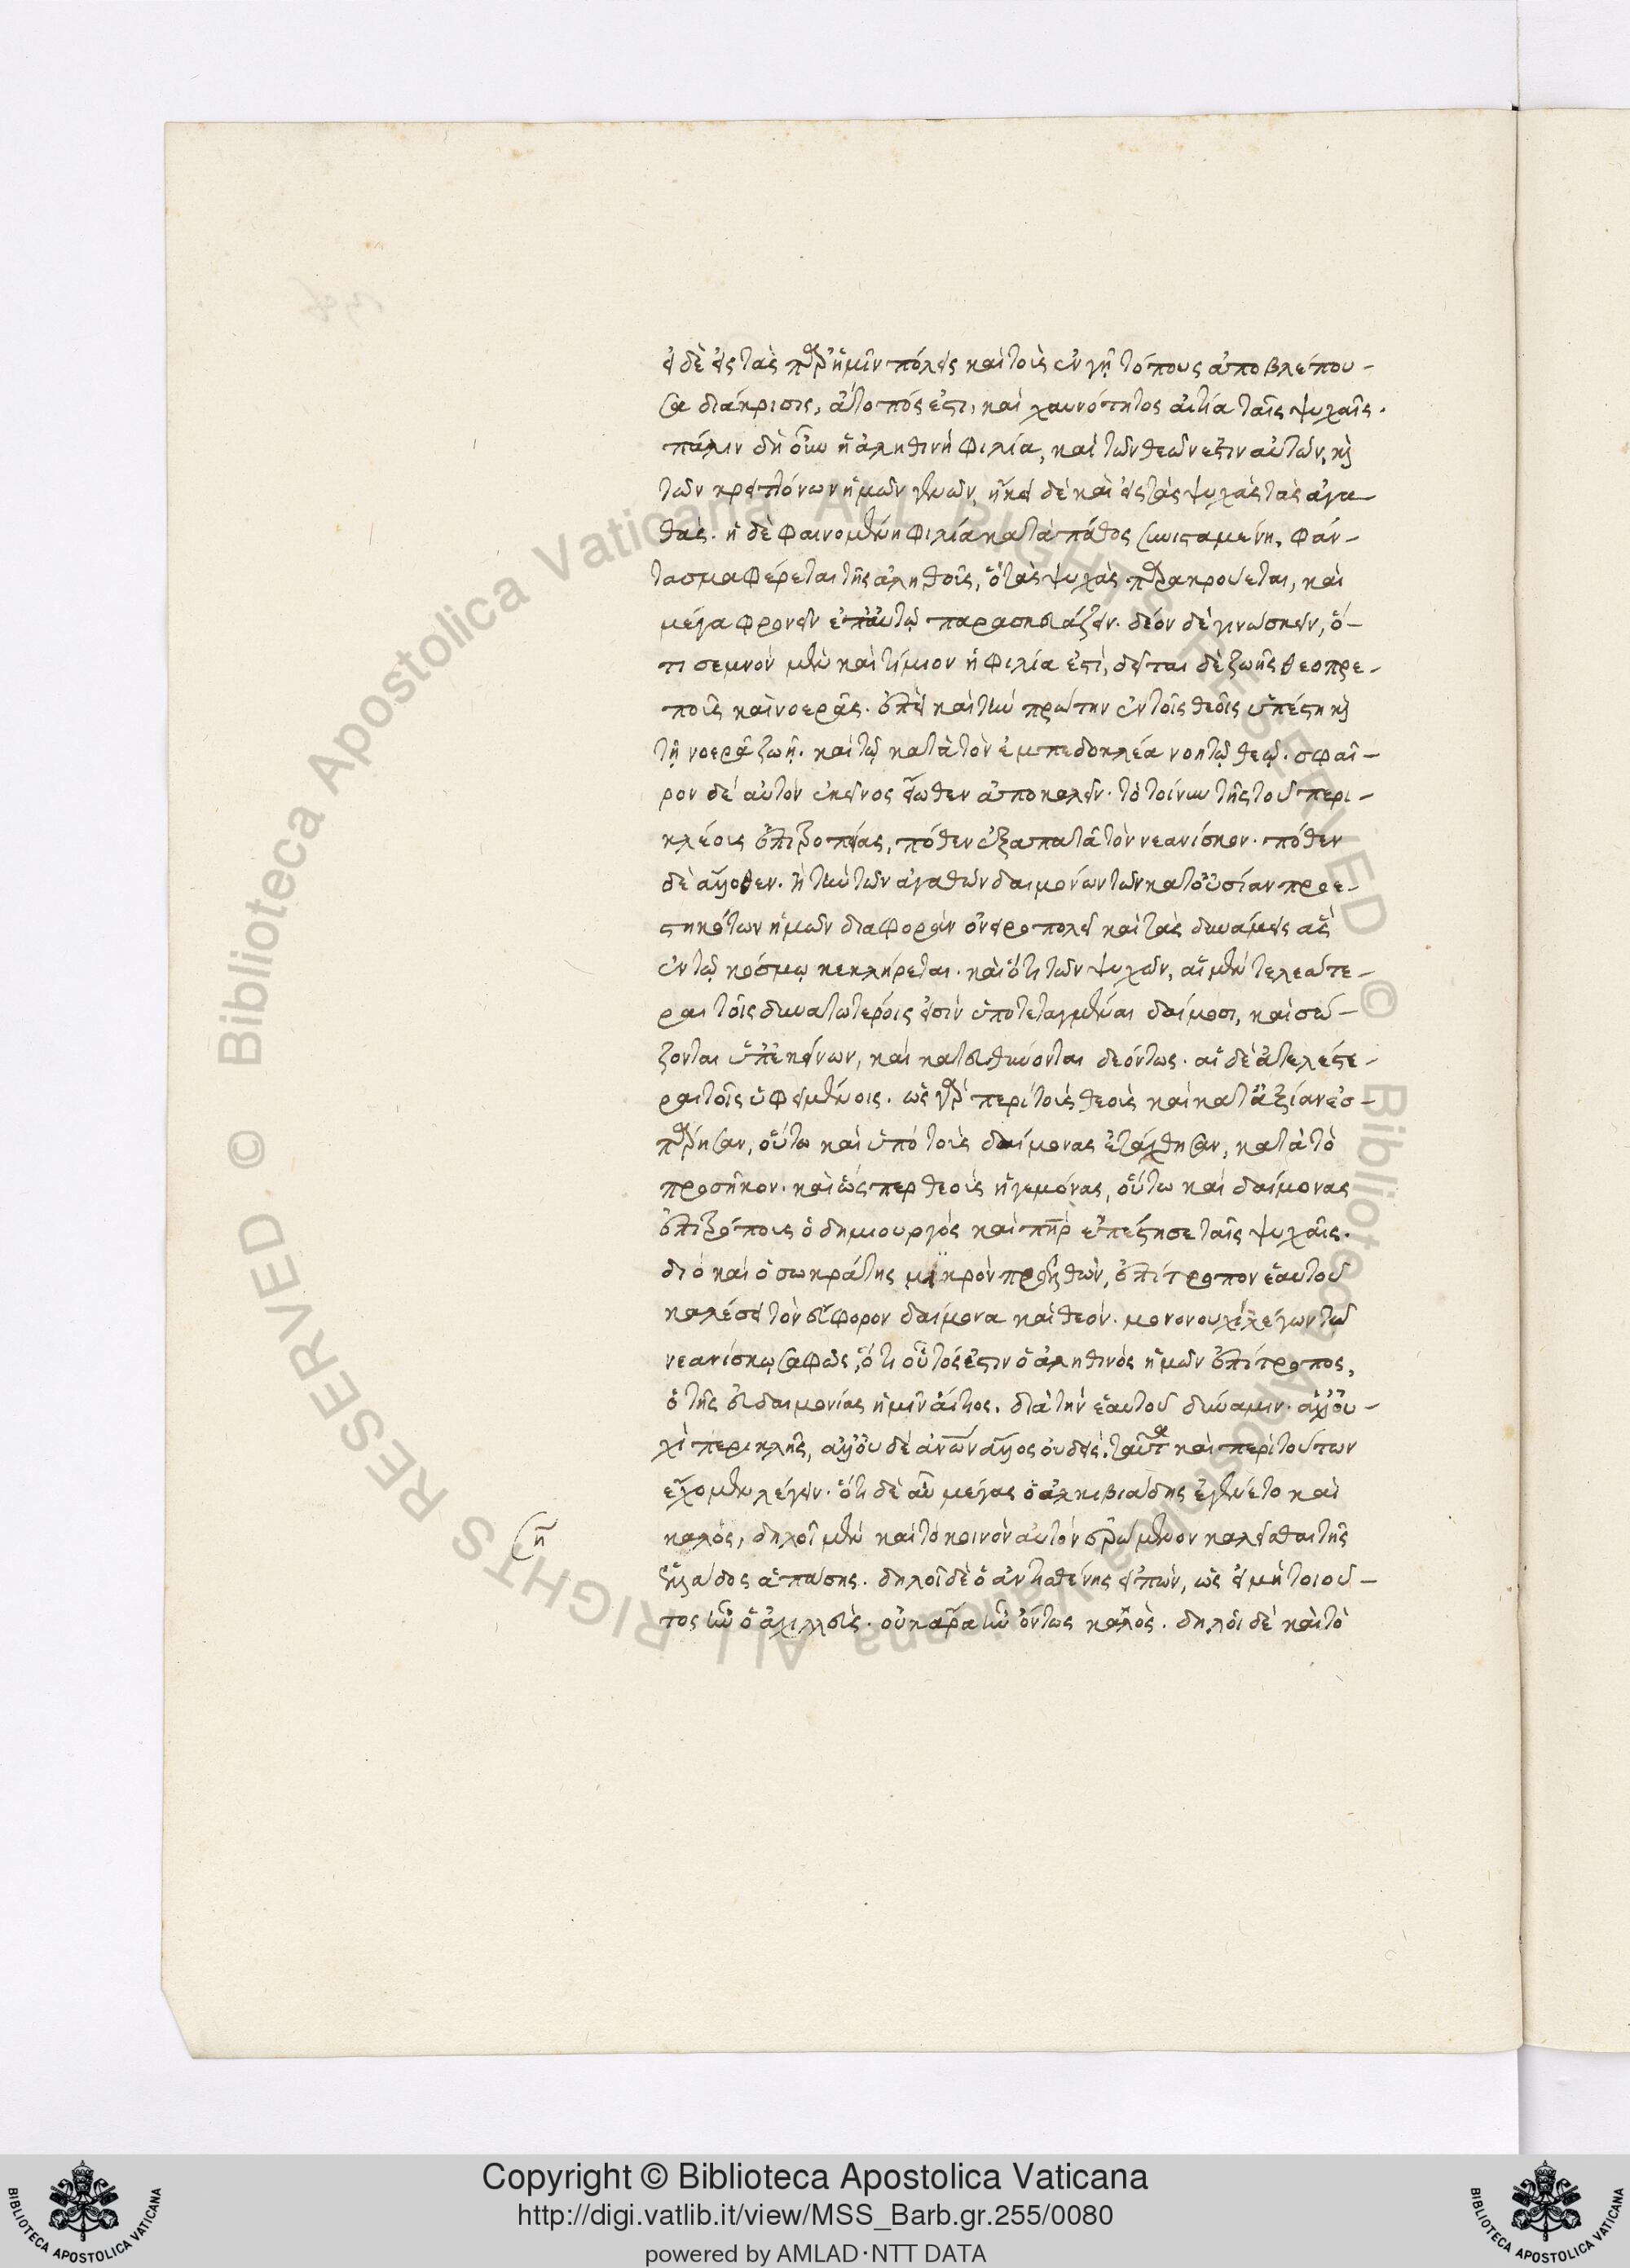 εἰ δὲ εἰς τὰς παρ' ἡμῖν πόλεις καὶ τοὺς ἐν γῇ τόπους ἀποβλέπου-
σα διάκρισις, ἄτοπός ἐστι, καὶ χαυνότητος αἰτία ταῖς ψυχαῖς.
πάλιν δὴ οὖν ἡ ἀληθινὴ φιλία, καὶ τῶν θεῶν ἐστιν αὐτῶν, καὶ
τῶν κρειττόνων ἡμῶν γενῶν, ἥκει δὲ καὶ εἰς τὰς ψυχὰς τὰς ἀγα-
θάς. ἡ δὲ φαινομένη φιλία κατὰ πάθος συνισταμένη, φάν-
τασμα φέρεται τῆς ἀληθοῦς, ὃ τὰς ψυχὰς παρακρούεται, καὶ
μέγα φρονεῖν ἐπ' αὐτῷ παρασκευάζειν. δέον δὲ γινώσκειν, ὅ-
τι σεμνὸν μὲν καὶ τίμιον ἡ φιλία ἐστί, δεῖται δὲ ζωῆς θεοπρε-
ποῦς καὶ νοερᾶς. ἐπεὶ καὶ τὴν πρώτην ἐν τοῖς θεοῖς ὑπέστη καὶ
τῇ νοερᾷ ζωῇ. καὶ τῷ κατὰ τὸν ἐμπεδοκλέα νοητῷ θεῷ. σφαῖ-
ρον δὲ αὐτὸν ἐκεῖνος εἴωθεν ἀποκαλεῖν. τὸ τοίνυν τῆς τοῦ περι-
κλέους ἐπιτροπείας, πόθεν ἐξαπατᾷ τὸν νεανίσκον. πόθεν
δὲ ἄλλοθεν. ἢ τὴν τῶν ἀγαθῶν δαιμόνων τῶν κατ' οὐσίαν προε-
στηκότων ἡμῶν διαφορὰν ὀνειροπολεῖ καὶ τὰς δυνάμεις ἃς
ἐν τῷ κόσμῳ κεκλήρεται. καὶ ὅτι τῶν ψυχῶν, αἱ μὲν τελεώτε-
ραι τοῖς δυνατωτέροις εἰσὶν ὑποτεταγμέναι δαίμοσι, καὶ σώ-
ζονται ὑπ' ἐκείνων, καὶ κατευθύνονται δεόντως. αἱ δὲ ἀτελέστε-
ραι τοῖς ὑφειμένοις. ὡς γὰρ περὶ τοὺς θεοὺς καὶ κατ' ἀξίαν ἐσ-
πάρησαν, οὕτω καὶ ὑπὸ τοὺς δαίμονας ἐτάχθησαν, κατὰ τὸ
προσῆκον. καὶ ὥσπερ θεοὺς ἡγεμόνας, οὕτω καὶ δαίμονας
ἐπιτρόπους ὁ δημιουργὸς καὶ πῆρ ἐπέστησε ταῖς ψυχαῖς.
διὸ καὶ ὁ σωκράτης μικρὸν προελθὼν, ἐπίτροπον ἑαυτοῦ
καλέσει τὸν ἔφορον δαίμονα καὶ θεόν. μονονουχὶ λέγων τῷ
νεανίσκῳ σαφῶς, ὅτι οὗτός ἐστιν ὁ ἀληθινὸς ἡμῶν ἐπίτροπος,
ὁ τῆς εὐδαιμονίας ἡμῖν αἴτιος, διὰ τὴν ἑαυτοῦ δύναμιν. ἀλλ' οὐ-
χὶ περικλῆς, ἀλλ' οὐδὲ ἀνων ἄλλος οὐδείς. ταῦτα καὶ περὶ τούτων
εἴχομεν λέγειν. ὅτι δὲ αὖ μέγας ὁ ἀλκιβιάδης ἐγένετο καὶ
καλὸς, δηλοῖ μὲν καὶ τὸ κοινὸν αὐτὸν ἐρώμενον καλεῖσθαι τῆς
ἑλλάδος ἁπάσης. δηλοῖ δὲ ὁ ἀντισθένης εἰπὼν, ὡς εἰ μὴ τοιοῦ-
τος ἦν ὁ ἀχιλλεὺς. οὐκ ἄρα ἦν ὄντως καλὸς. δηλοῖ δὲ καὶ τὸ
Copyright © Biblioteca Apostolica Vaticana
http://digi.vatlib.it/view/MSS_Barb.gr.255/0080
powered by AMLAD·NTT DATA